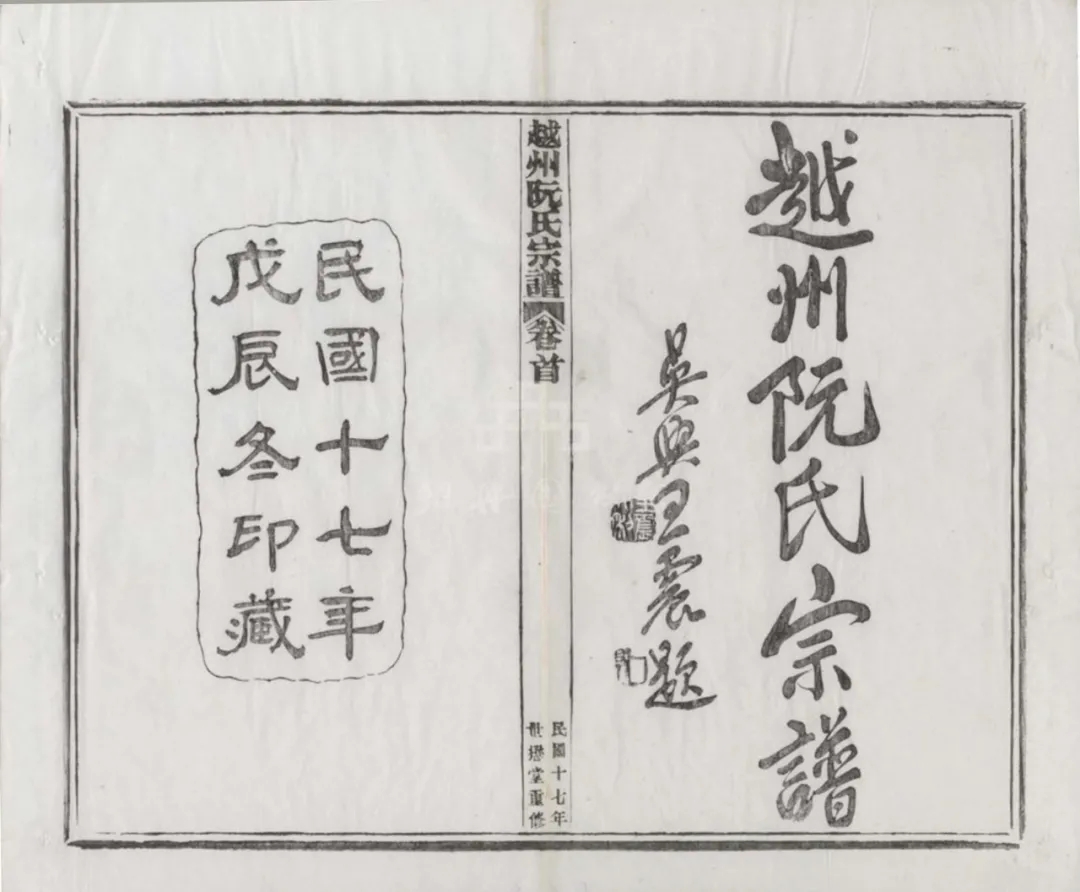 越州阮氏宗譜
吳興王震題
越州阮氏宗譜
卷首
民國十七年
世楙堂重修
民國十七年
戊辰冬印藏